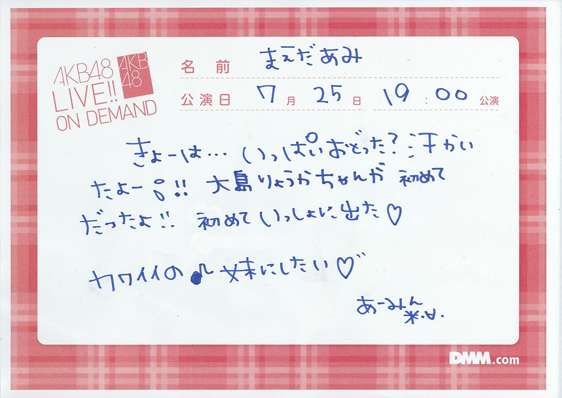 AKB48
LIVE!!
ON DEMAND
AKB
48
名前 まえだあみ
公演日 7月25日 19:00公演
きょーは… いっぱいおどった?汗かい
たよー!! 大島りょうかちゃんが 初めて
だったよ!! 初めていっしょに出た♡
カワイイの♪妹にしたい♡
あーみん
DMM.com